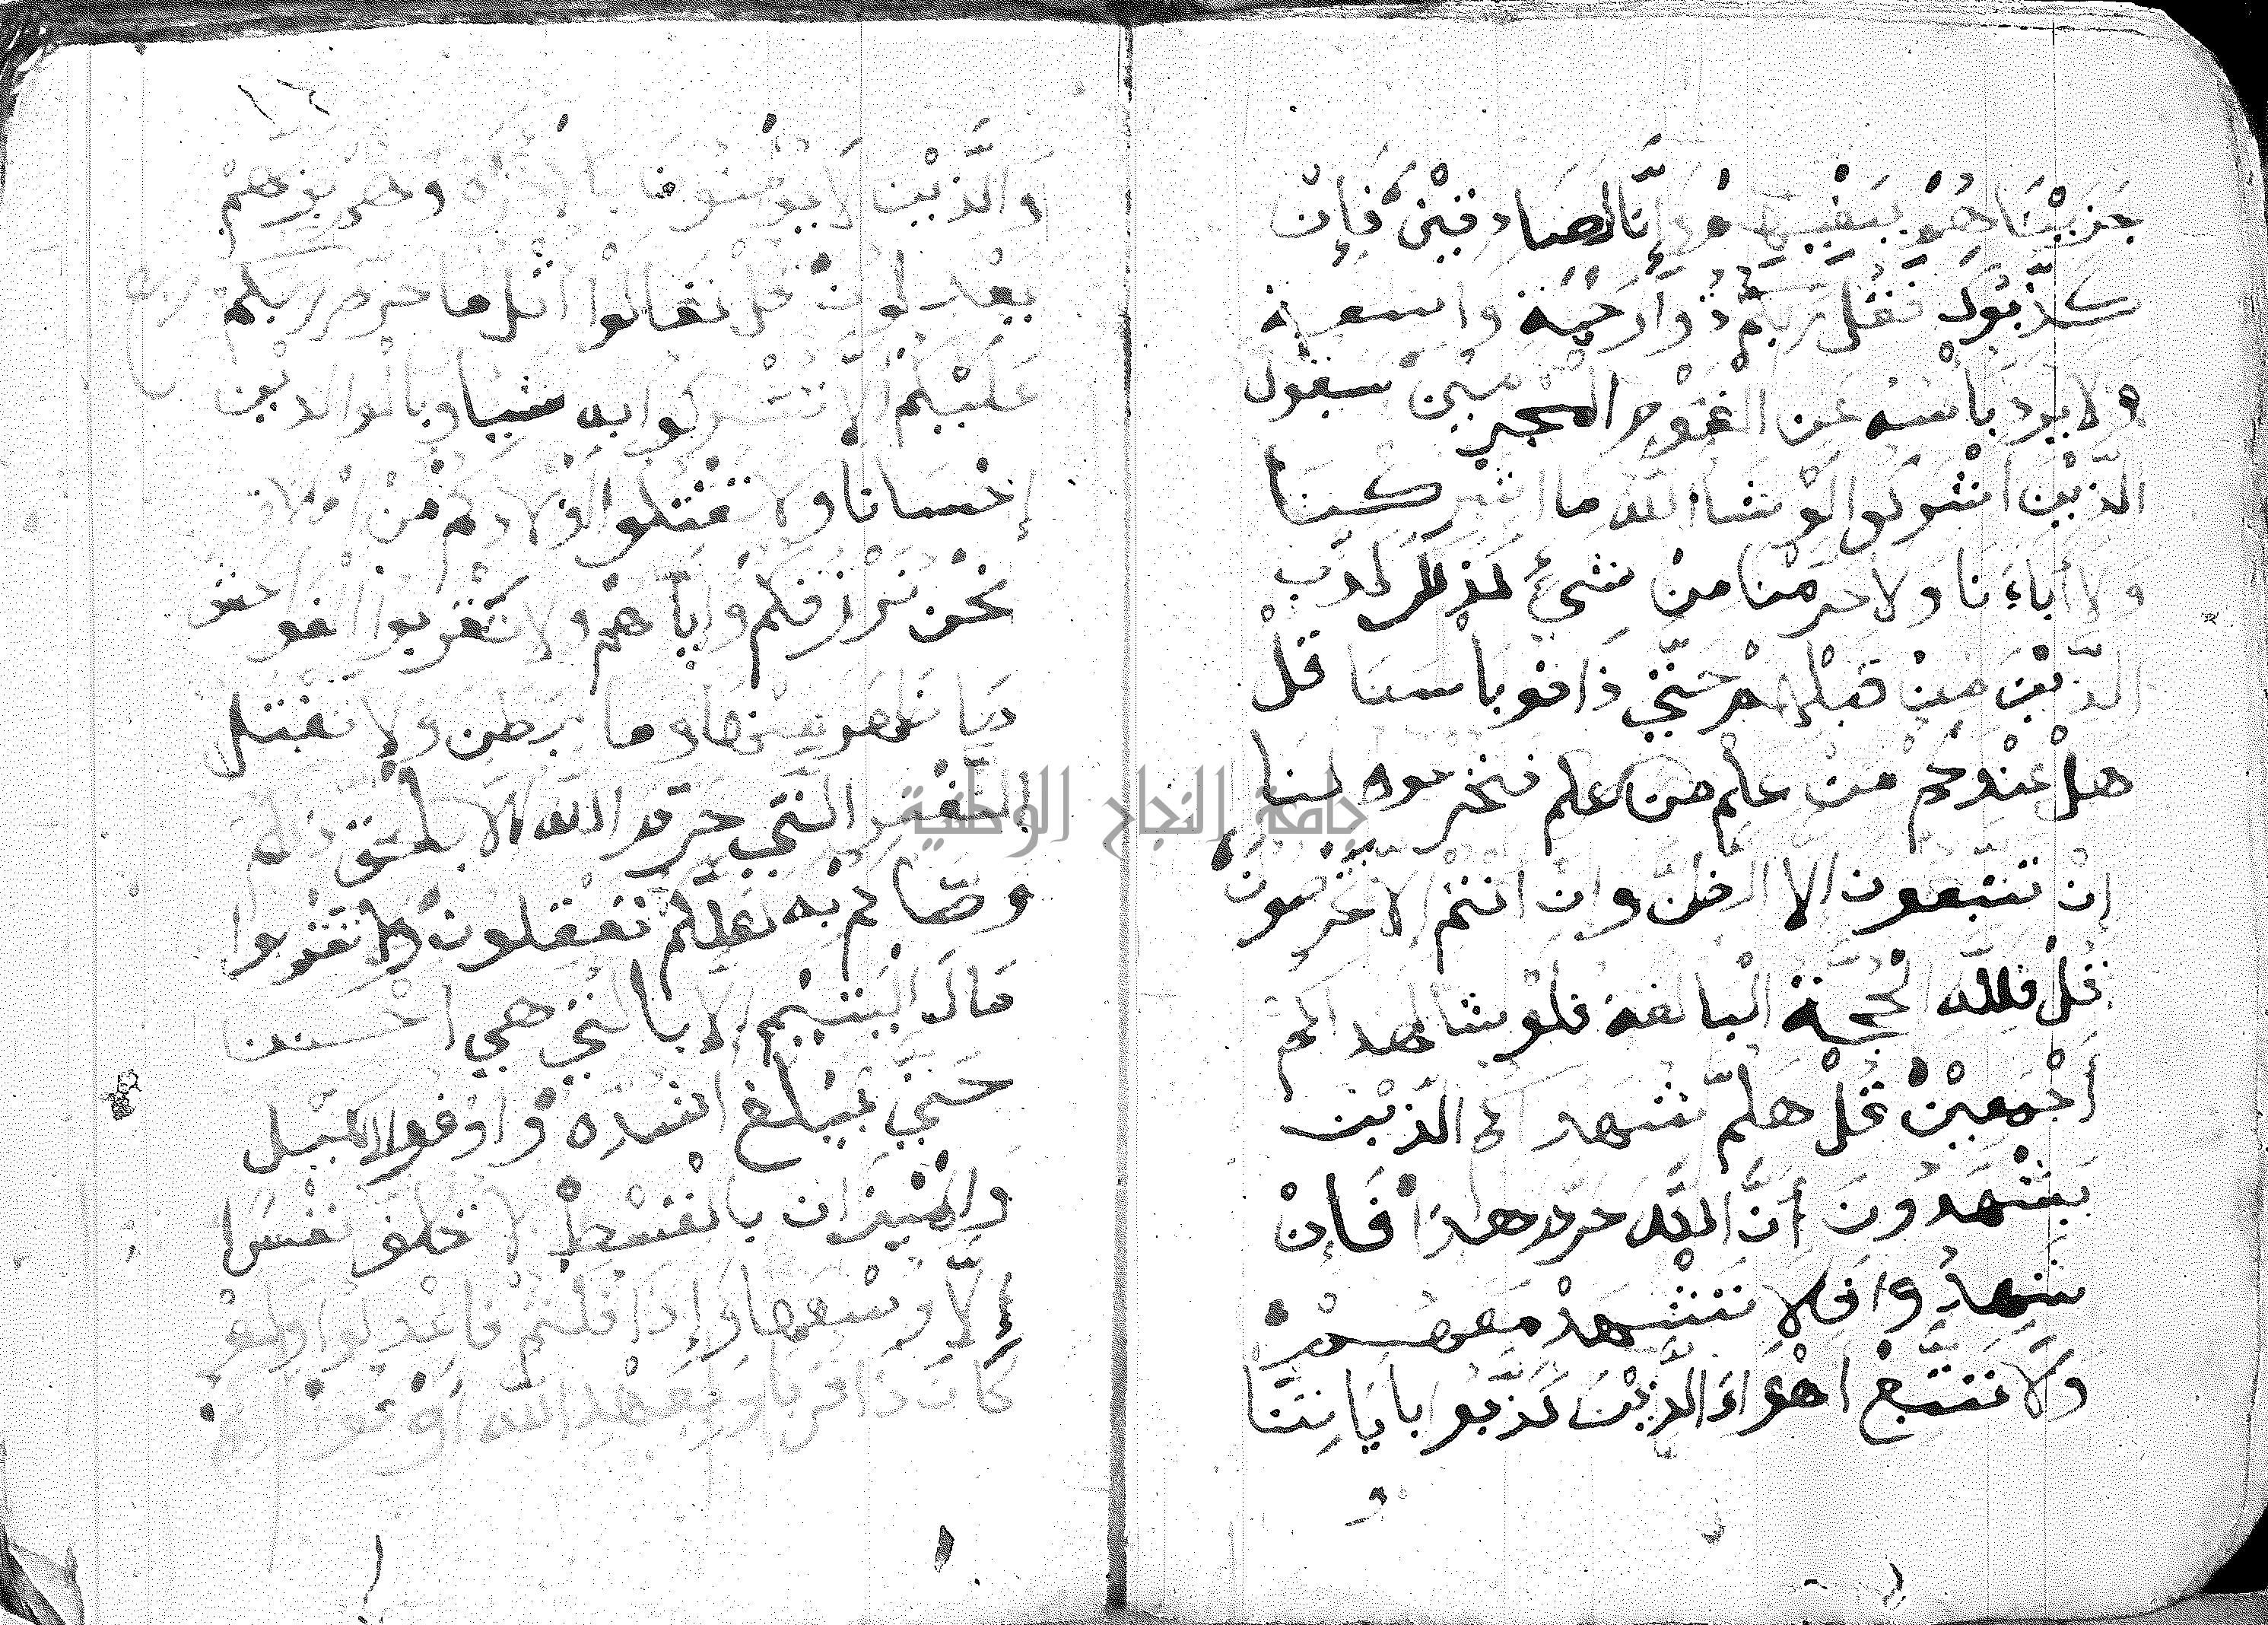 جَزَيْنَاهُمْ بِبَغْيِهِمْ وَإِنَّا لَصَادِقِيْنَ فَإِنْ
كَذَّبُوكَ فَقُلْ رَبُّكُمْ ذُوْا رَحْمَةٍ وَاسِعَةٍ
وَلا يُرَدُّ بَأْسُهُ عَنِ الْقَوْمِ الْمُجْرِمِيْنَ سَيَقُولُ
الَّذِيْنَ اشْرَكُوا لَوْ شَا اللّه مَا اشْرَكْنَا
وَلا أباءَنَا وَلا حَرَّمْنَا مِنْ شَيْءٍ كَذلِكَ كَذَّبَ
الَّذِيْنَ مِنْ قَبْلِهِمْ حَتّي ذَاقُو بَاسَنَا قُلْ
هَلْ عِنْدَكُمْ مِنْ عِلْمٍ من علم فَتُخْرِجُوه لَنَا
اِنْ تَتَّبِعُونَ الاَّ الظَنَّ وَاِنْ اَنْتُمْ اِلاَّ تَخْرُصُونَ
قُلْ فَلِلّهِ الْحُجَّةُ الْبَالِغَة فَلَوْ شَا لَهَدَاكُمْ
أَجْمَعِيْنَ قُلْ هَلُمَّ شُهَدَاكُمُ الَّذِيْنَ
يَشْهَدُونَ أَنَّ اللَّهَ حَرَّمَ هَذَا فَإِنْ
شَهِدُوا فَلا تَشْهَدْ مَعَهُمْ
وَلاَ تَتَّبِعْ اهْوَاءَ الَّذِيْنَ كَذَّبُوا بِايَاتِنَا
و
١٦
وَالَّذِيْنَ لاَ يُوْمِنُونَ بِالاَخِرَة وَهُمْ بِرَبِّهِمْ
يَعْدِلُونَ قُلْ تَعَالَوْا اتْلُ مَا حَرَّمَ رَبُّكُمْ
عَلَيْكُمْ أَلاَّ تُشْرِكُوا بِهِ شَيْا وَبِالْوَالِدَيْنِ
إِحْسَانا وَلاَ تَقْتُلُوا اَوْلادَكُمْ مِنْ اِمْلاق
نَحْنُ نَرْزُقُكُمْ وَإيَّاهُمْ وَلاَ تَقْرَبُوا الفَوَاحِشَ
مَا ظَهَرَ مِنْهَا وَمَا بَطَنَ وَلاَ تَقْتُلُ
النَّفْسَ الَّتِي حَرَّمَ اللّه اِلاَّ بِالْحَقِّ ذلِكُمْ
وَصَّاكُمْ بِه لَعَلَّكُمْ تَعْقِلُونَ وَلا تَقْرَبُوا
مَالَ اليَتِيْمِ اِلاَّ بِالَّتِي هِيَ احْسَنُ
حَتَّي يَبْلُغَ اشُدَّه وَاوْفُوا الكَيْلَ
وَالْمِيْزَانَ بِالْقِسْطِ لا نُكَلِّفُ نَفْسًا
إِلاَّ وُسْعَهَا وَإِذَا قُلْتُمْ فَاعْدِلُوا وَلَوْ
كَانَ ذَا قُرْبَا وَبِعَهْدِ اللّهِ اَوْفُوا
جامعة النجاح الوطنية